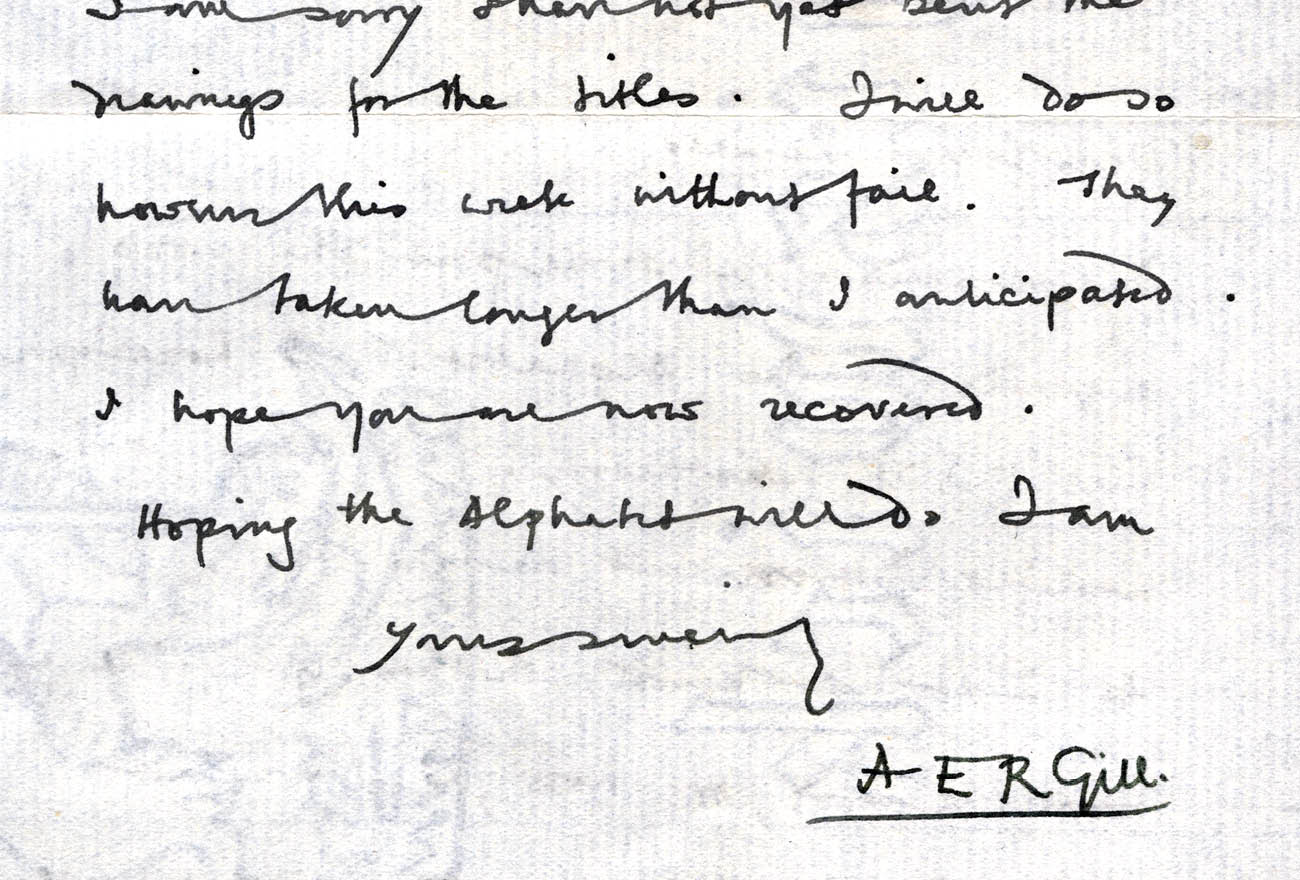 I am sorry I have not yet sent the
drawings for the titles. I will do so
however this week without fail. They
have taken longer than I anticipated.
I hope you are now recovered.
Hoping the Alphabet will do I am
yours sincerely
A E R Gill.